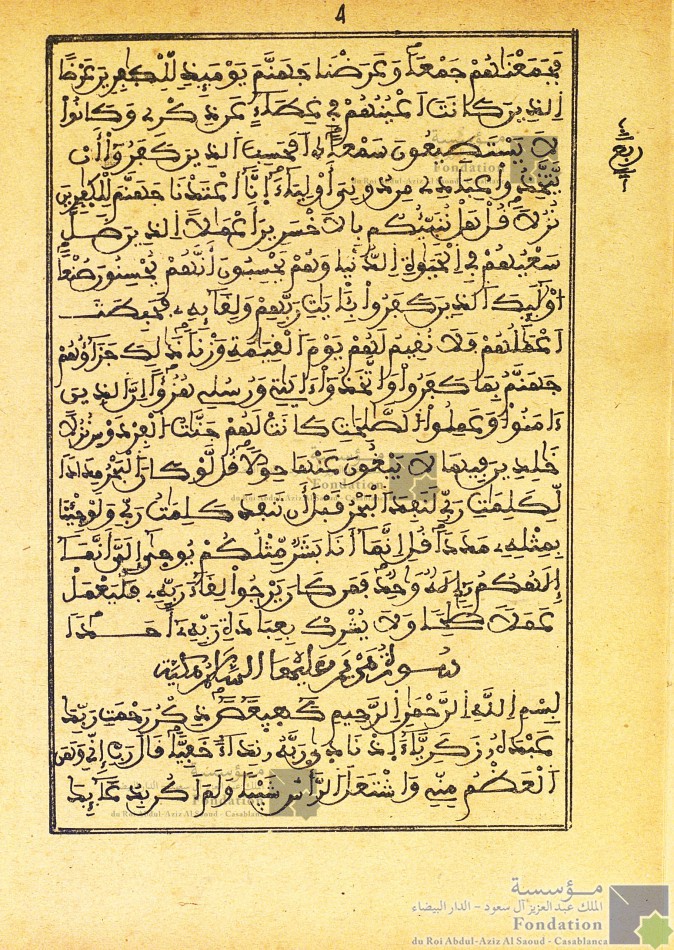 4
فجمعنهم جمعا وعرضنا جهنم يوميذ للكفرين عرضا
الذين كانت اعينهم في غطاء عن ذكري وكانوا
لا يستطيعون سمعا افحسب الذين كفروا أن
يتخذوا عبادي من دوني أولياء إنا أعتدنا جهنم للكفرين
نزلا قل هل ننبيكم بالاخسرين أعملا الذين ضل
سعيهم في الحيوة الدنيا وهم يحسبون أنهم يحسنون صنعا
اوليك الذين كفروا بـايت ربهم ولقايه فحبطت
اعملهم فلا نقيم لهم يوم القيمة وزنا ذلك جزاؤهم
جهنم بما كفروا واتخذوا ءايتي ورسلي هزؤا ان الذين
ءامنوا وعملوا الصلحت كانت لهم جنت الفردوس نزلا
خلدين فيها لا يبغون عنها حولا قل لو كان البحر مدادا
لكلمت ربي لنفد البحر قبل أن تنفد كلمت ربي ولو جينا
بمثله مددا قل انما أنا بشر مثلكم يوحى إلي أنما
إلهكم إله وحد فمن كان يرجوا لقاء ربه فليعمل
عملا صلحا ولا يشرك بعبادة ربه أحدا
سورة مريم عليها السلام مكية
بسم الله الرحمن الرحيم كهيعص ذكر رحمت ربك
عبده زكرياء اذ نادى ربه نداء خفيا قال رب إني وهن
العظم مني واشتعل الراس شيبا ولم اكن بدعايك
ربع
مؤسسة
الملك عبد العزيز آل سعود - الدار البيضاء
Fondation
du Roi Abdul-Aziz Al Saoud - Casablanca